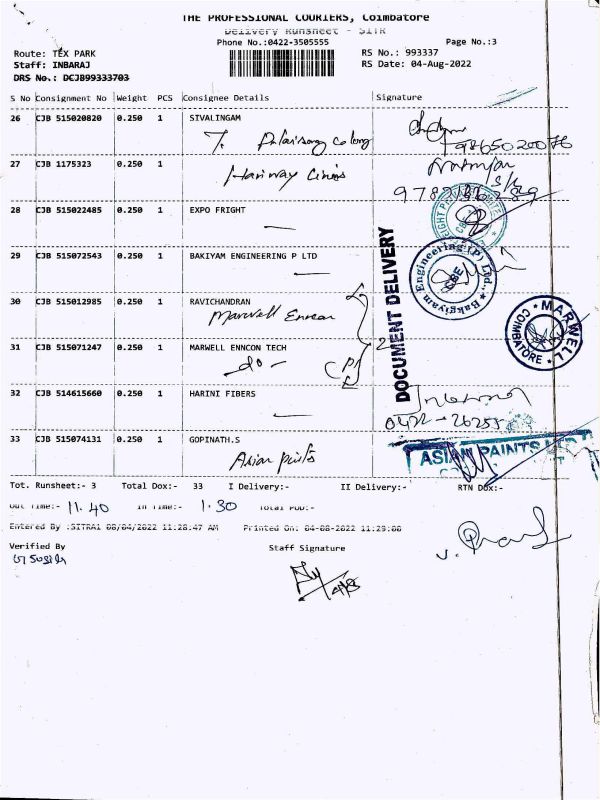 THE PROFESSIONAL COURIERS, Coimbatore
Delivery Runsheet - SITR
Phone No.:0422-3505555
Page No.:3
Route: TEX PARK
RS No.: 993337
Staff: INBARAJ
RS Date: 04-Aug-2022
DRS No.: DCJB99333703
S No Consignment No Weight PCS Consignee Details Signature
26 CJB 515020820 0.250 1 SIVALINGAM
27 CJB 1175323 0.250 1
28 CJB 515022485 0.250 1 EXPO FRIGHT
29 CJB 515072543 0.250 1 BAKIYAM ENGINEERING P LTD
Bakgiyam Engineering (P) Ltd.,
CBE
DOCUMENT DELIVERY
30 CJB 515012985 0.250 1 RAVICHANDRAN
Marwell Enncon
MARWELL
COIMBATORE
31 CJB 515071247 0.250 1 MARWELL ENNCON TECH
-do-
32 CJB 514615660 0.250 1 HARINI FIBERS
33 CJB 515074131 0.250 1 GOPINATH.S
Asian paints
ASIAN PAINTS
Tot. Runsheet:- 3 Total Dox:- 33 I Delivery:- II Delivery:- RTN Dox:-
Out Time:- 11.40 In Time:- 1.30 Total POD:-
Entered By :SITRA1 08/04/2022 11:28:47 AM Printed On: 04-08-2022 11:29:00
Verified By
Staff Signature